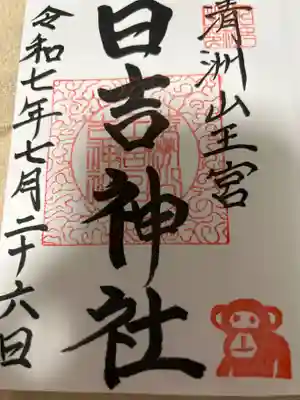 清洲山王宮
日吉神社
令和七年七月二十六日